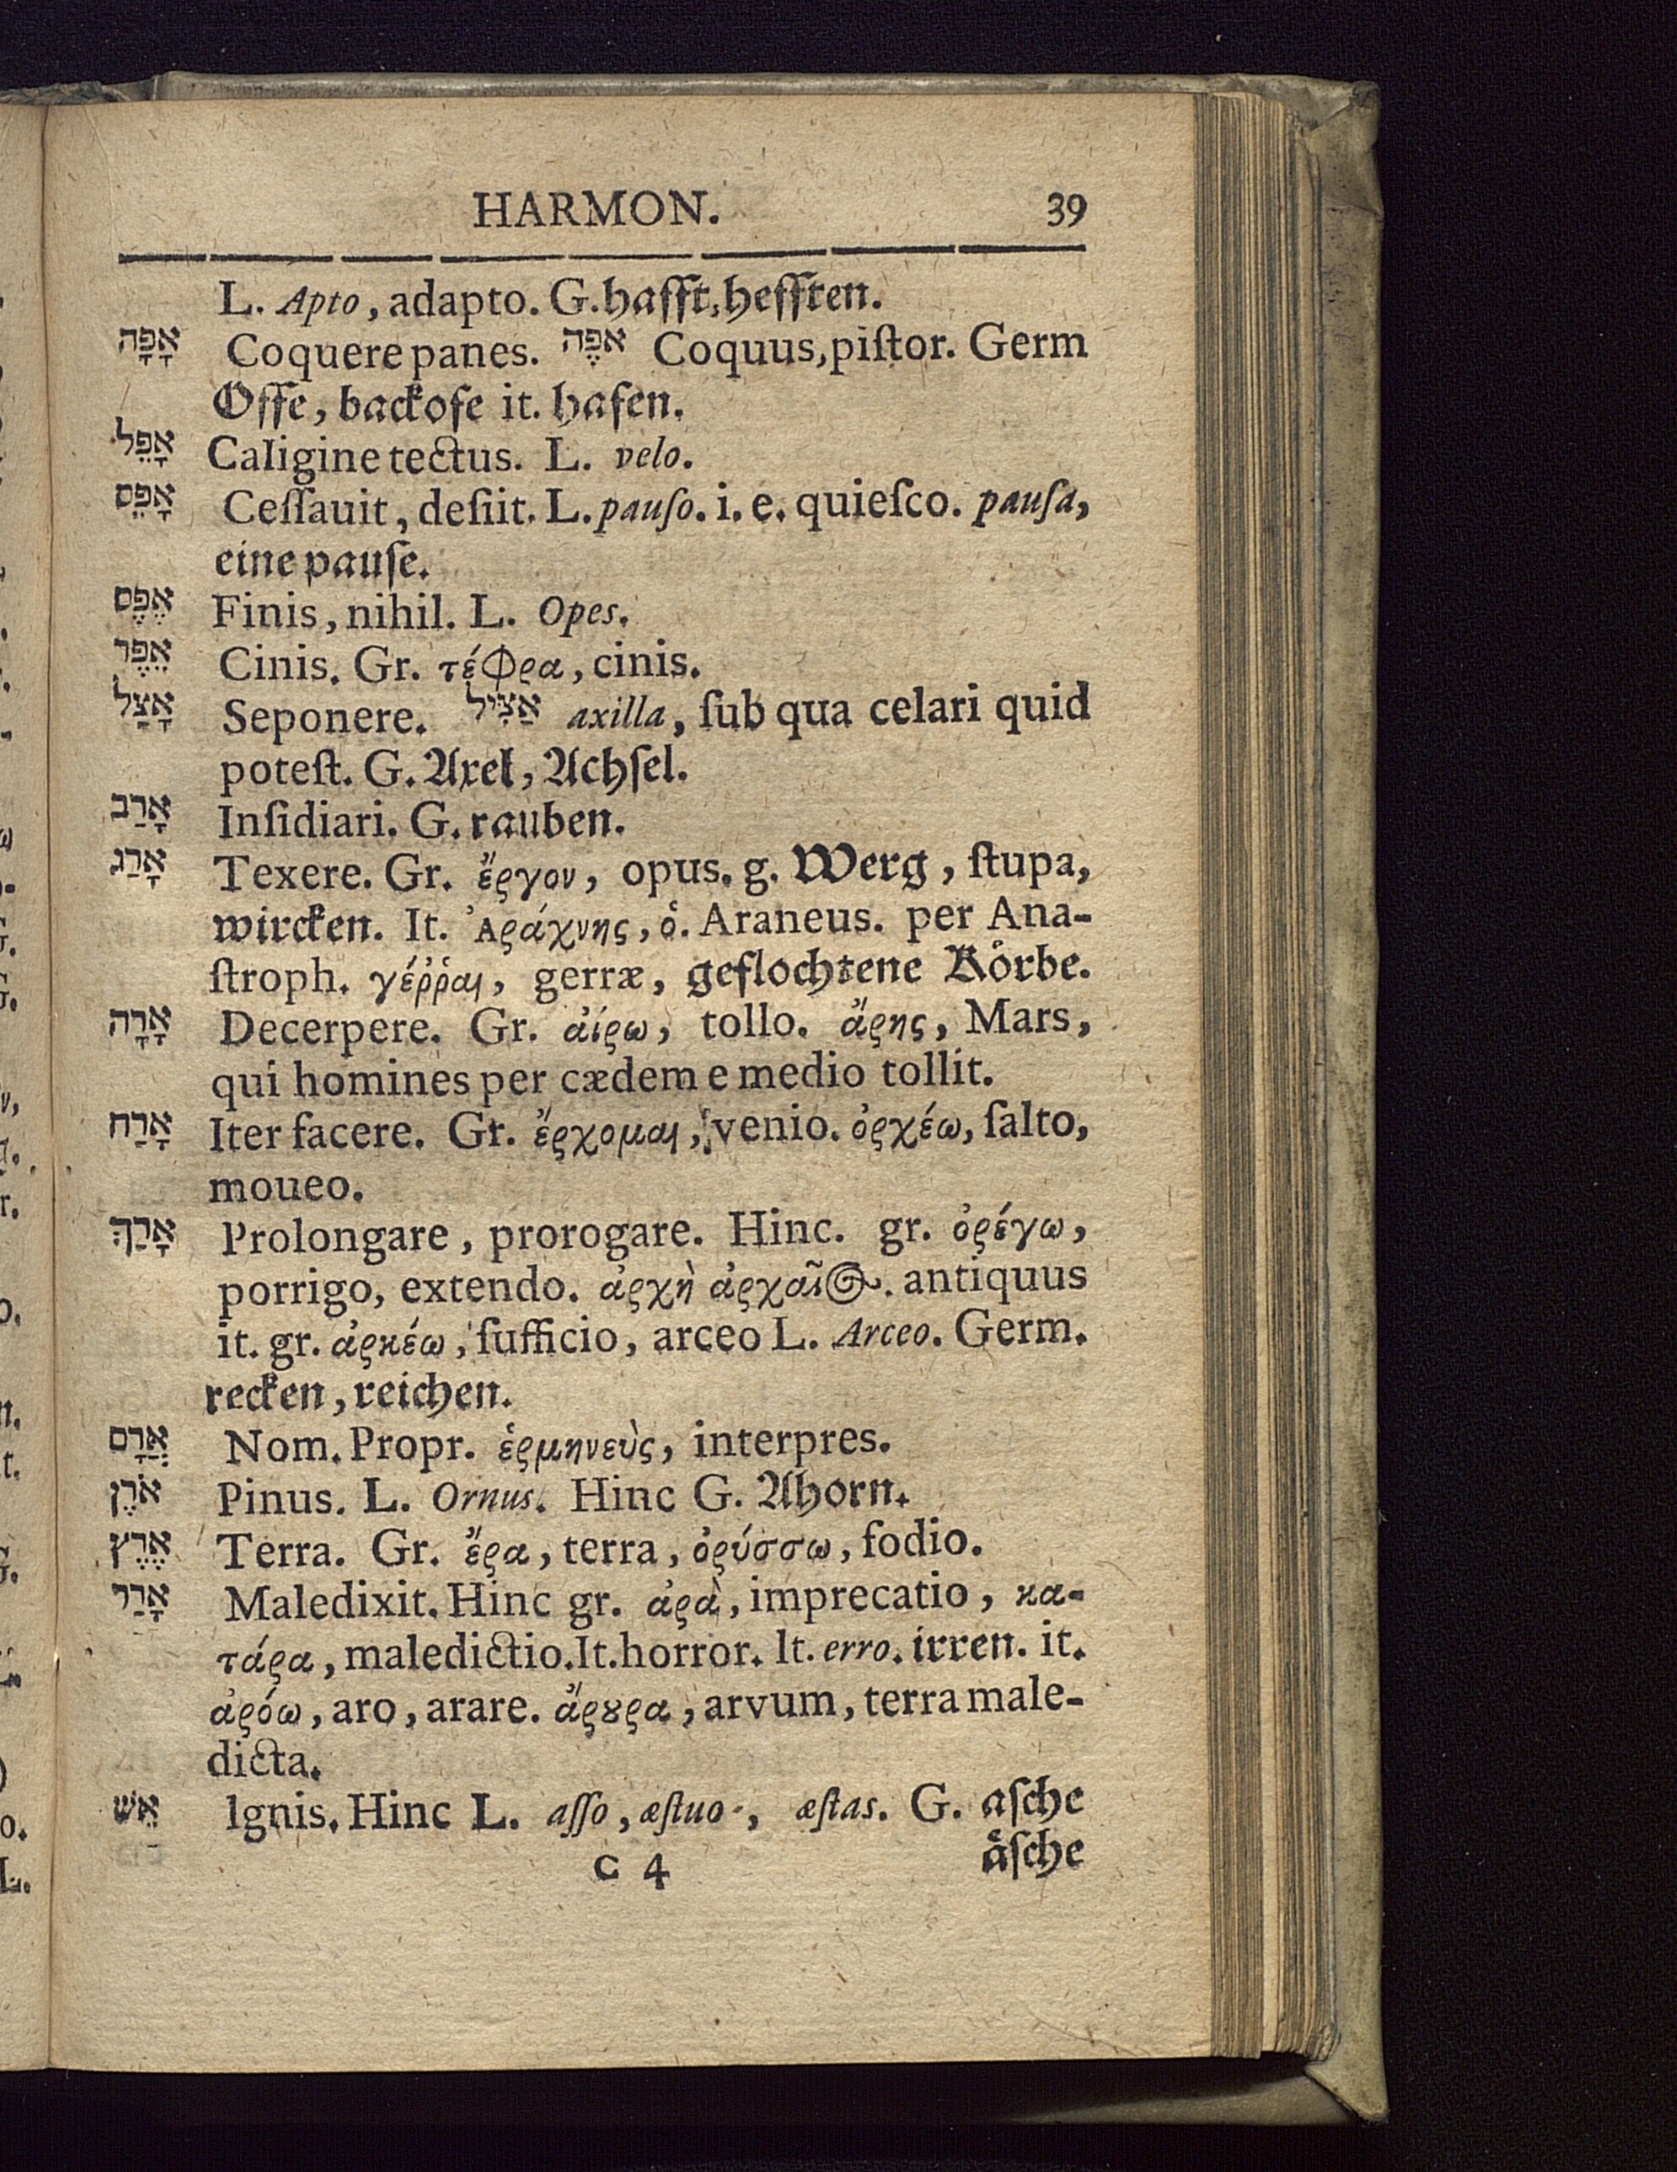 HARMON. 39
L. Apto, adapto. G. hafft, hefften.
אָפָה Coquere panes. אֹפֶה Coquus, piſtor. Germ
Offe, backofe it. hafen.
אָפֵל Caligine tectus. L. velo.
אָפֵס Ceſſauit, deſiit. L. pauſo. i. e. quieſco. pauſa,
eine pauſe.
אֶפֶס Finis, nihil. L. Opes.
אֵפֶר Cinis. Gr. τέφρα, cinis.
אָצַל Seponere. אַצִּיל axilla, ſub qua celari quid
poteſt. G. Axel, Achſel.
אָרַב Inſidiari. G. rauben.
אָרַג Texere. Gr. ἔργον, opus. g. Werg, ſtupa,
wircken. It. Ἀράχνης, ὁ. Araneus. per Ana-
ſtroph. γέῤῥαι, gerræ, geflochtene Koͤrbe.
אָרָה Decerpere. Gr. ἀίρω, tollo. ἄρης, Mars,
qui homines per cædem e medio tollit.
אָרַח Iter facere. Gr. ἔρχομαι, venio. ὀρχέω, ſalto,
moueo.
אָרַךְ Prolongare, prorogare. Hinc. gr. ὀρέγω,
porrigo, extendo. ἀρχὴ ἀρχαῖος. antiquus
it. gr. ἀρκέω, ſufficio, arceo L. Arceo. Germ.
recken, reichen.
אֲרָם Nom. Propr. ἑρμηνεὺς, interpres.
אֹרֶן Pinus. L. Ornus. Hinc G. Ahorn.
אֶרֶץ Terra. Gr. ἔρα, terra, ὀρύσσω, fodio.
אָרַר Maledixit. Hinc gr. ἀρὰ, imprecatio, κα-
τάρα, maledictio. It. horror. It. erro. irren. it.
ἀρόω, aro, arare. ἄρȣρα, arvum, terra male-
dicta.
אֵשׁ Ignis. Hinc L. aſſo, æſtuo, æſtas. G. aſche
C 4 aͤſche